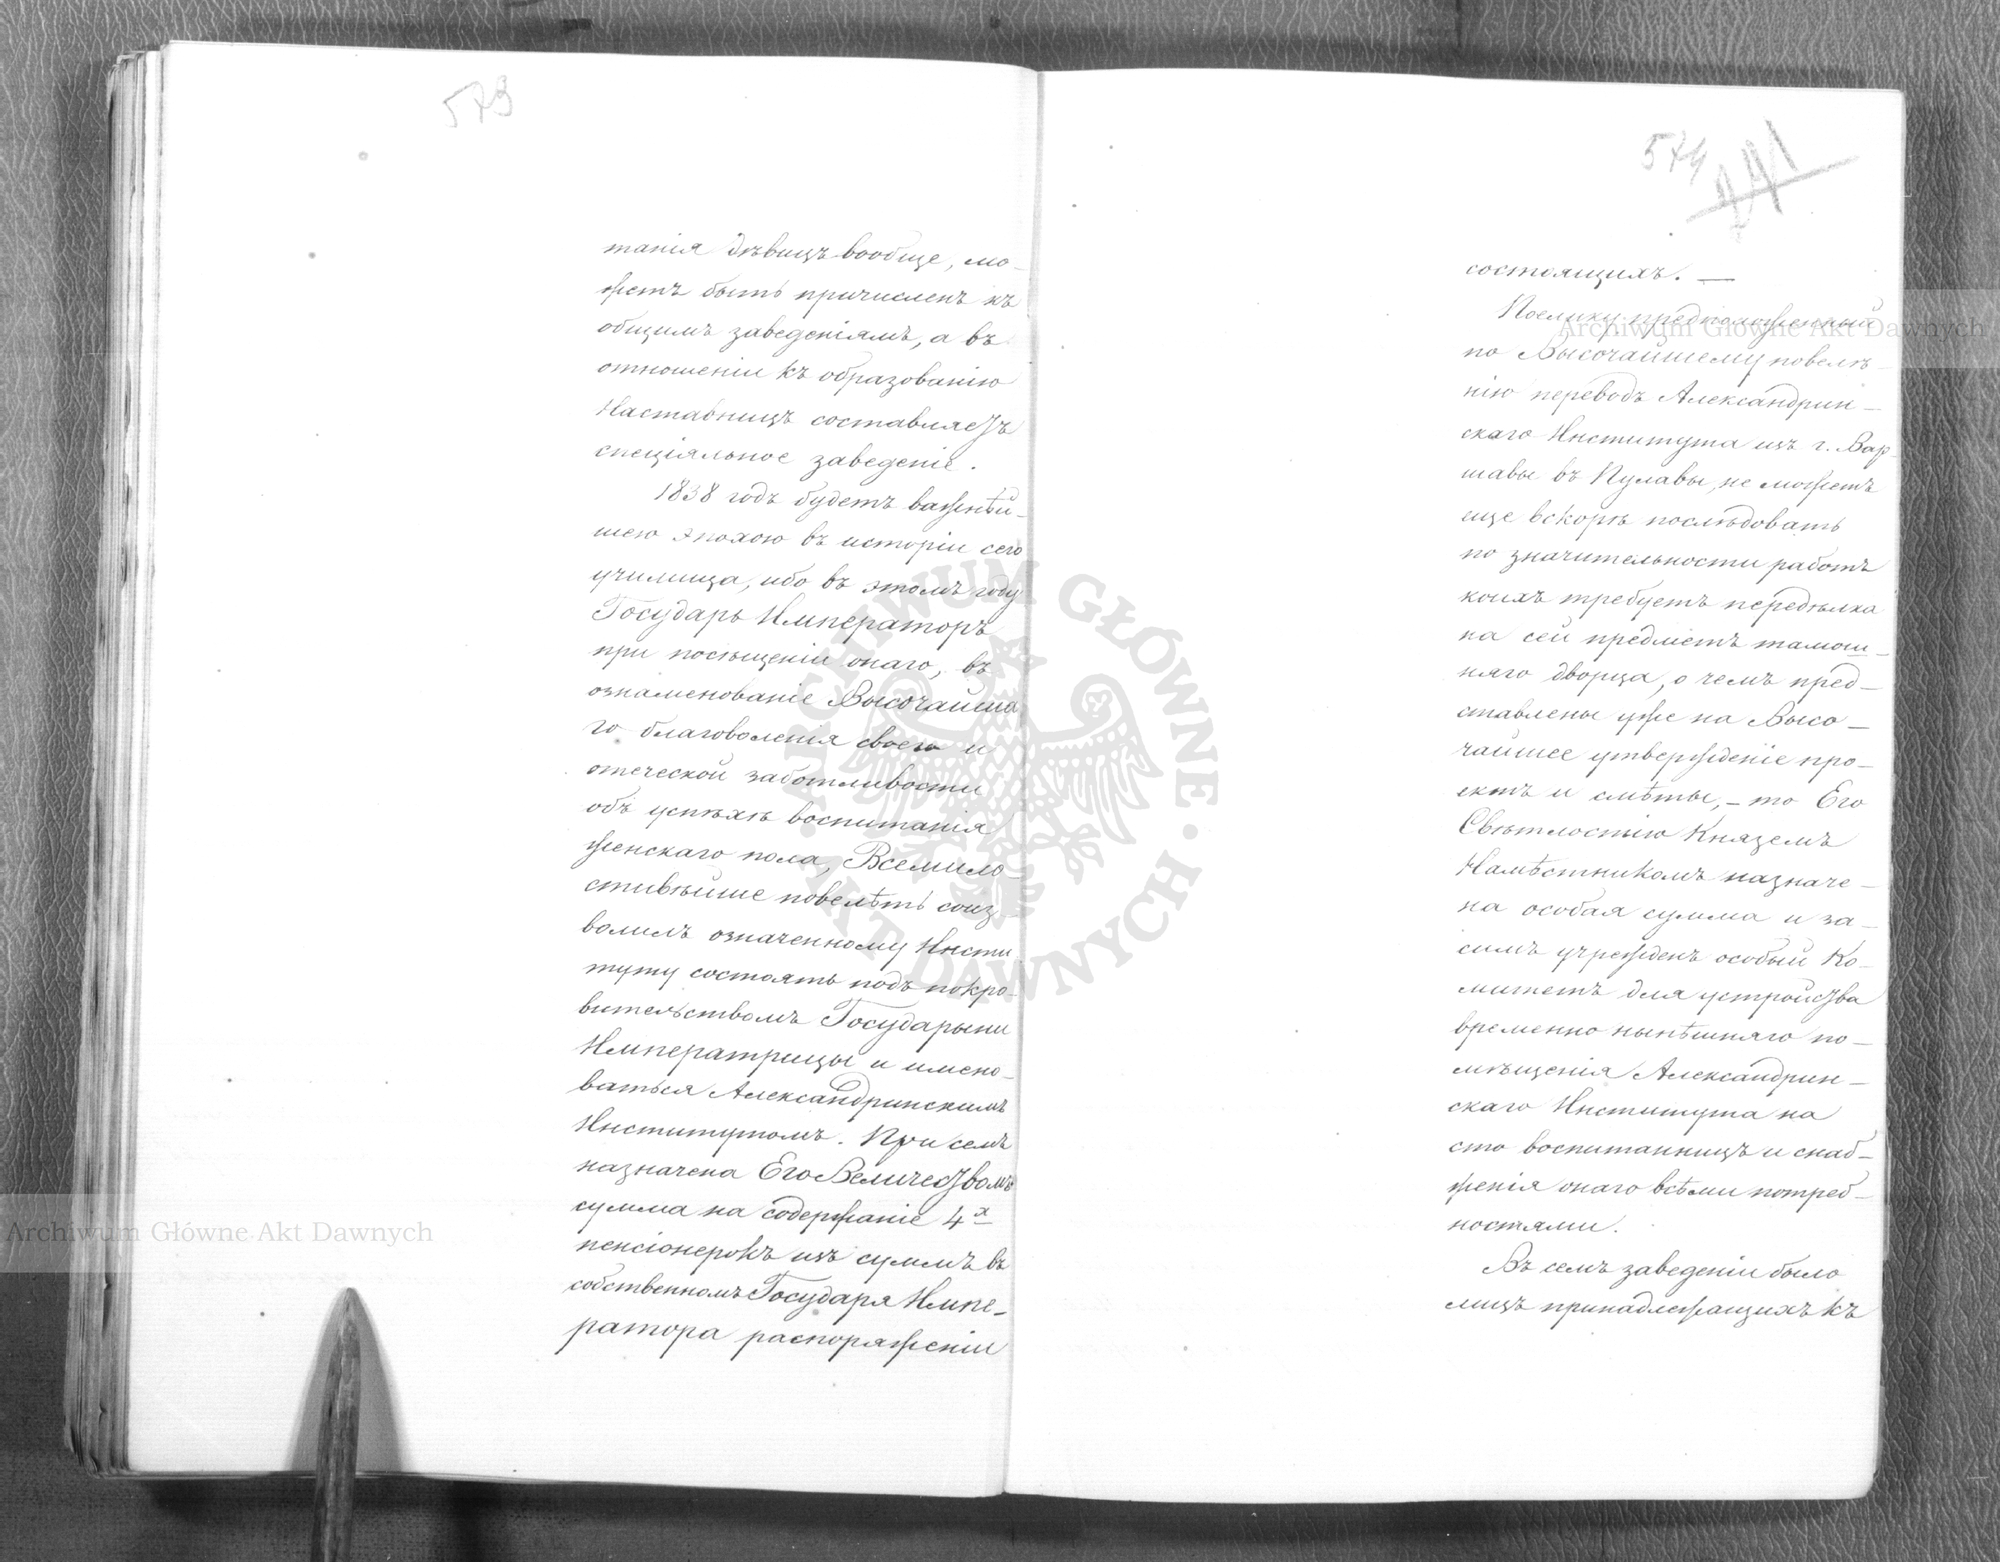 573
танія дѣвицъ вообще, мо-
жетъ быть причисленъ къ
общимъ заведеніямъ, а въ
отношеніи къ образованію
Наставницъ составляетъ
спеціяльное заведеніе.
1838 годъ будетъ важнѣй-
шею эпохою въ исторіи сего
училища, ибо въ этомъ году
Государь Императоръ
при посѣщеніи онаго, въ
ознаменованіе Высочайша
го благоволенія своего и
отеческой заботливости
объ успѣхѣ воспитанія
женскаго пола, Всемило-
стивѣйше повелѣть соиз-
волилъ означенному Инсти
туту состоять подъ покро-
вительствомъ Государыни
Императрицы и имено-
ваться Александринскимъ
Институтомъ. При семъ
назначена Его Величествомъ
сумма на содержаніе 4х
пенсіонерокъ изъ суммъ въ
собственномъ Государя Импе-
ратора распоряженіи
574
241
состоящихъ. —
Поелику предположенный
по Высочайшему повелѣ-
нію переводъ Александрин-
скаго Института изъ г. Вар-
шавы въ Пулавы, не можетъ
еще вскорѣ послѣдовать
по значительности работъ
коихъ требуетъ передѣлка
на сей предметъ тамош-
няго дворца, о чемъ пред-
ставлены уже на Высо-
чайшее утвержденіе про-
ектъ и смѣты, – то Его
Свѣтлостію Княземъ
Намѣстникомъ назначе-
на особая сумма и за-
симъ учрежденъ особый Ко-
митетъ для устройства
временно нынѣшняго по-
мѣщенія Александрин-
скаго Института на
сто воспитанницъ и снаб-
женія онаго всѣми потреб-
ностями.
Въ семъ заведеніи было
лицъ принадлежащихъ къ
Archiwum Główne Akt Dawnych
Archiwum Główne Akt Dawnych
ARCHIWUM GŁÓWNE AKT DAWNYCH